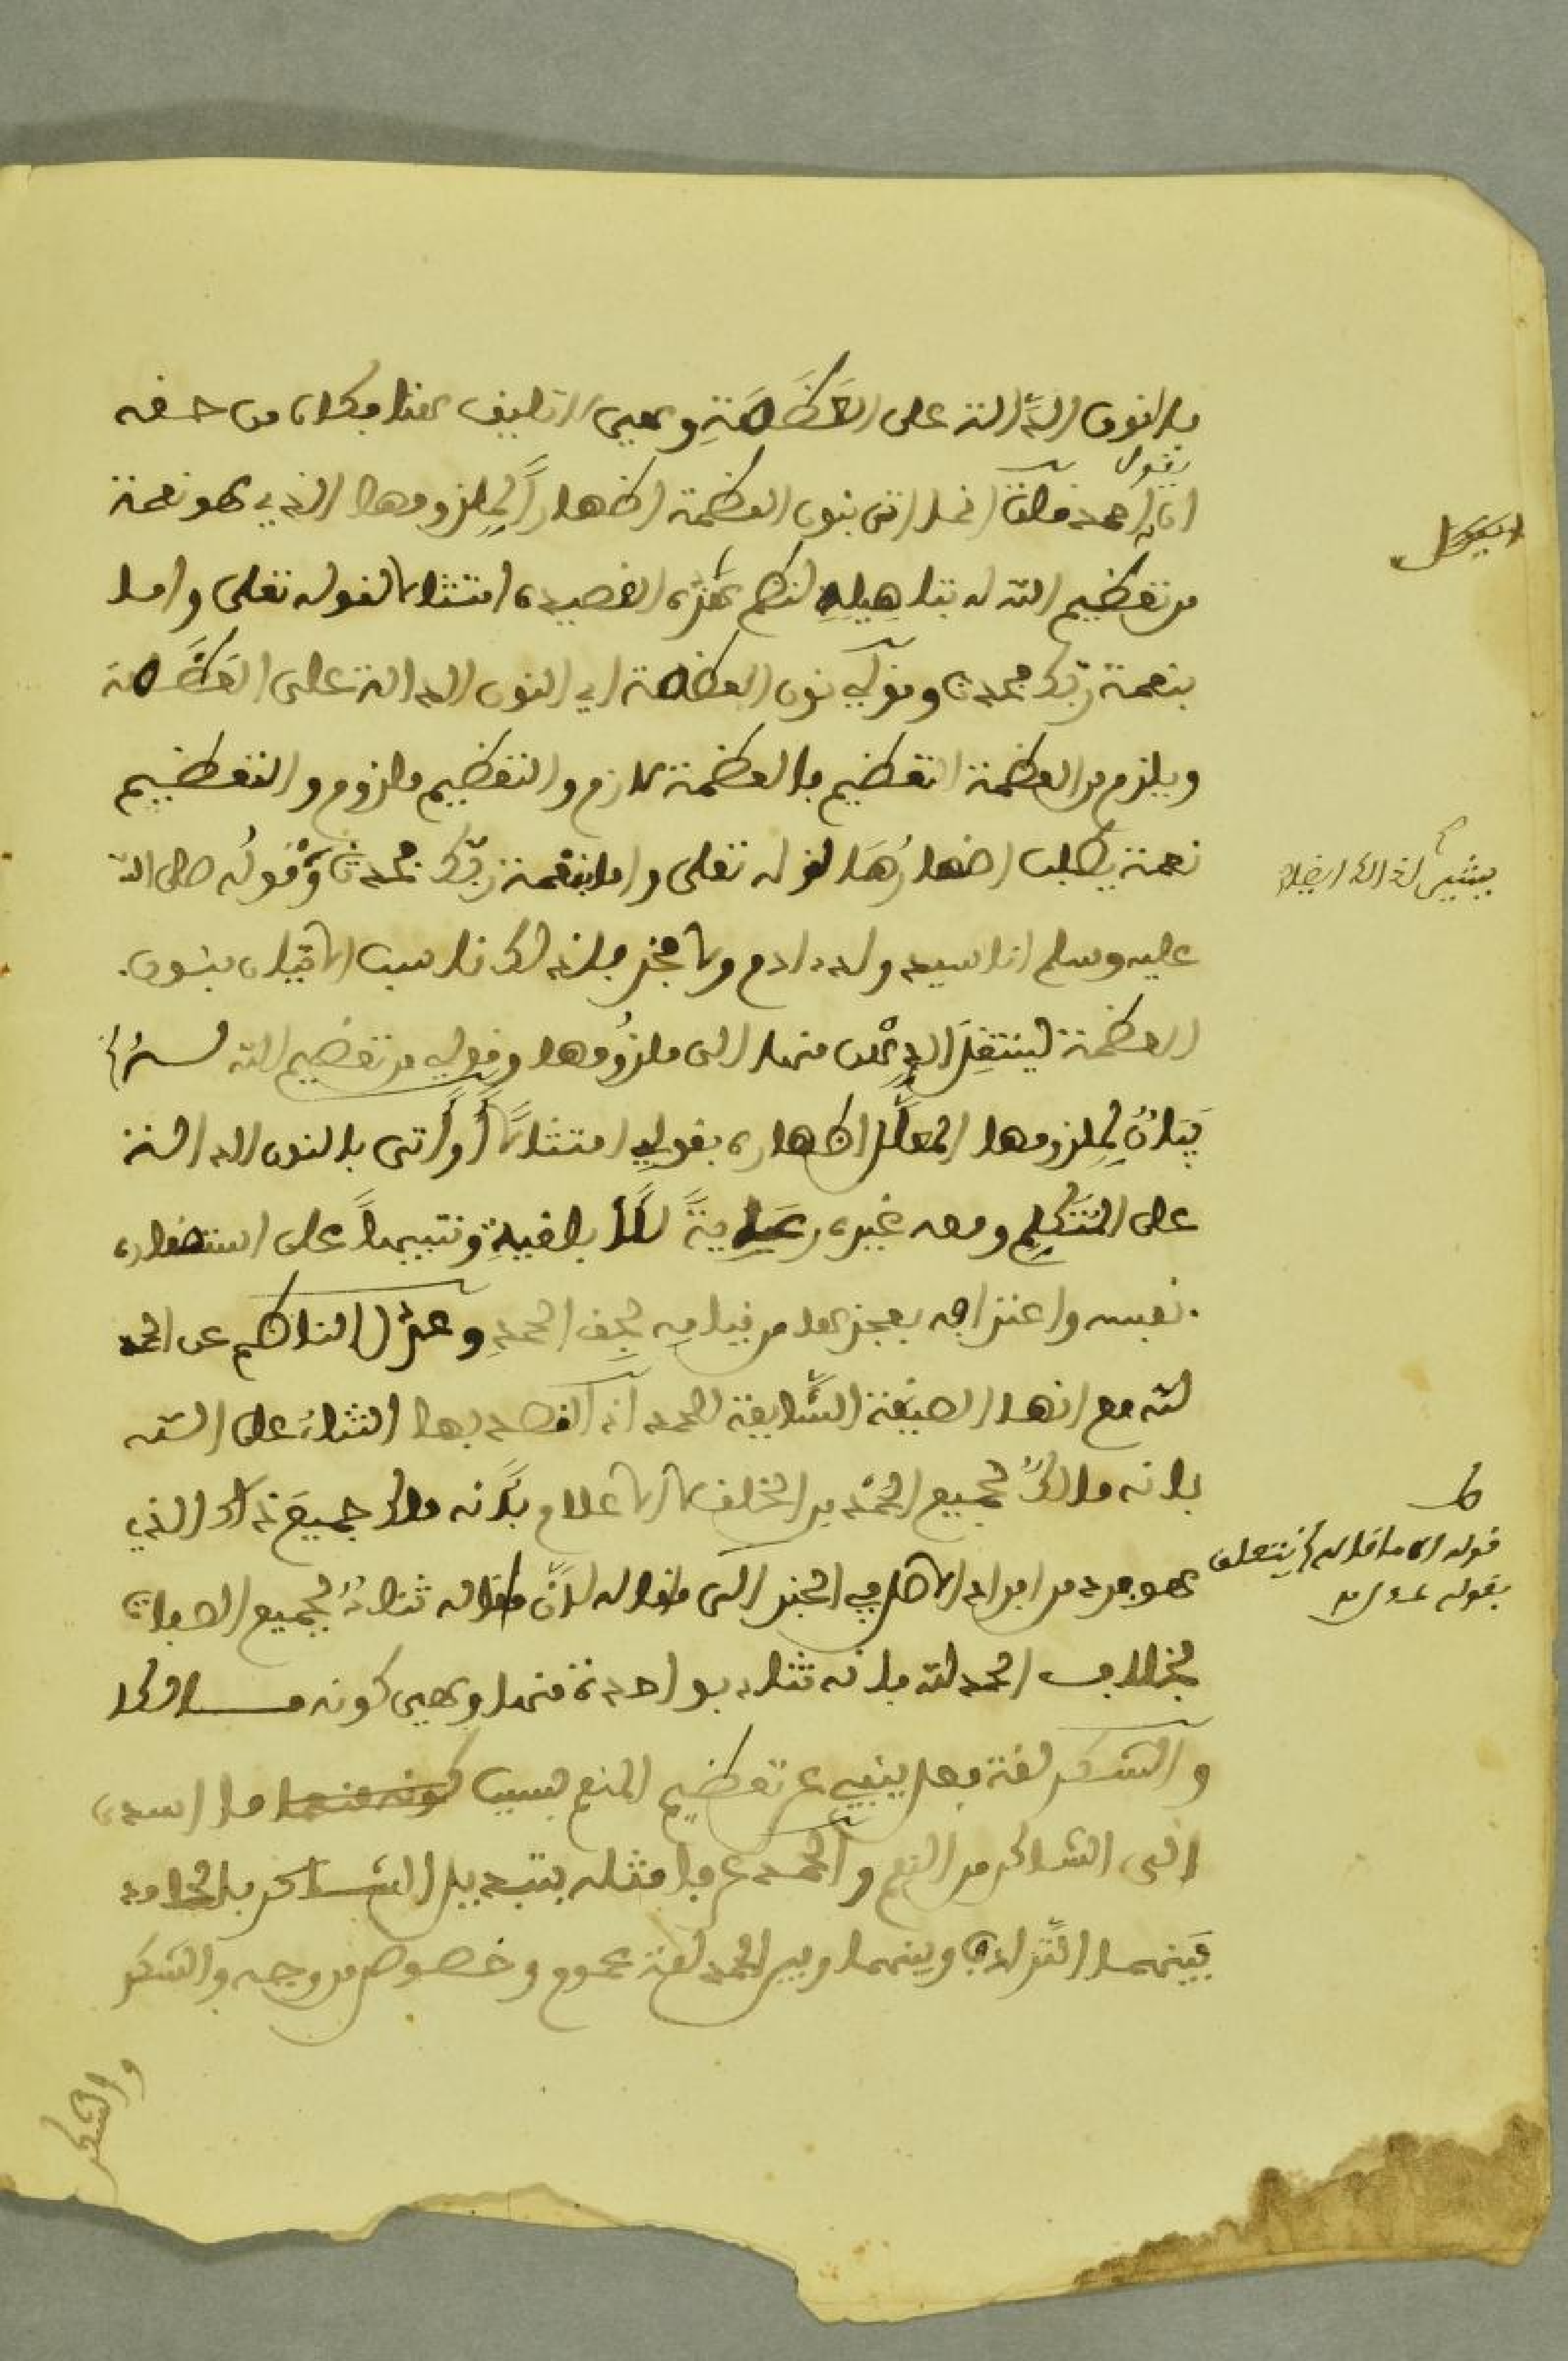 بالنون الدَّالة على العَظَمَةِ وهي لا تليق هنا فكان من حقه
يقول
ان احمد قلت انما اتى بنون العظمة اظهاراً لِملزومها الذي هو نعمة
من تعظيم الله له بتاهيلِهِ لنظم هذه القصيدة امتثالا لقوله تعلى واما
بنعمة ربّك فحدث وقولي نون العظمة اي النون الدالة على العَظَمة
ويلزم من العظمة التعظيم فالعظمة لازم والتعظيم ملزوم والتعظيم
نعمة يطلب اظهارُهَا لقوله تعلى واما بنعمة ربّك فحدث وَقولُه صلى الله
عليه وسلم انا سيد ولد ادم ولا فخر فلذلك ناسب الاتيان بنون
العظمة لينتقِلَ الذِهْن منها الى ملزُومها وقولي من تعظيم الله له
بَيَانٌ لِملزومها المعلَّل اظهاره بقولي امتثالاً أَو أَتى بالنون الدالة
على المتكلِّم ومعه غيره رعَايةً للقافية وتنبيهاً على استحقار
نفسه واعترافه بعجزها من قيامه بحق الحمدِ وعَدَل الناظم عن الحمد
لله مع انها الصيغة الشَّايعة للحمد اذ القصد بها الثناءُ على الله
بانه مالكٌ لجميع الحَمْد من الخلف لا الاعلام بأَنه مالك جميع ذلك الذي
هو فرد من افراد الاصل في الخبر الى ما قاله لأنَّ ما قاله ثناءٌ بجميع الصفات
بخلاف الحمد لله فانه ثناء بواحدة منها وهي كونه مالكا
والشكر لغة فعل ينبيء عن تعظيم المنعم بسبب كونه منعما ما اسدى
الى الشاكر من النعم والحمد عرفا مثله بتبديل الشاكر بالحامد
بَينهما الترادف وبينهما وبين الحمد لغة عموم وخصوص من وجه والشكر
والشكر
يشير لذلك ايضا
قوله الى ما قاله يتعلق
بقوله عدل